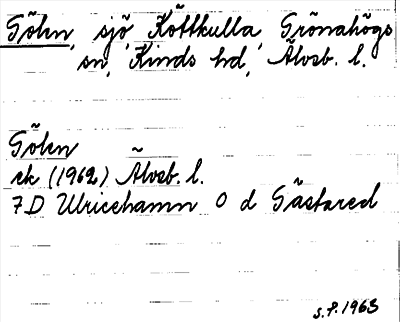 Gölen, sjö, Köttkulla, Grönahögs
sn, Kinds hd, Älvsb. l.
Gölen
ek (1962) Älvsb. l.
7D Ulricehamn O d Gästared
S.P. 1963